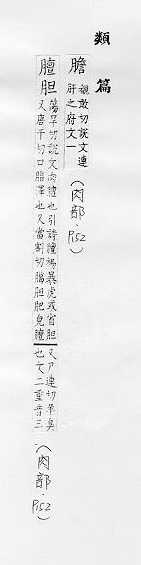 類篇
膽
覩敢切說文連
肝之府文一
(肉部·P152)
膻胆
蕩旱切說文肉膻也引詩膻裼暴虎或省胆
又唐干切口脂澤也又當割切胆肥皃膻
又尸連切羊臭
也文二重音三
(肉部·P152)